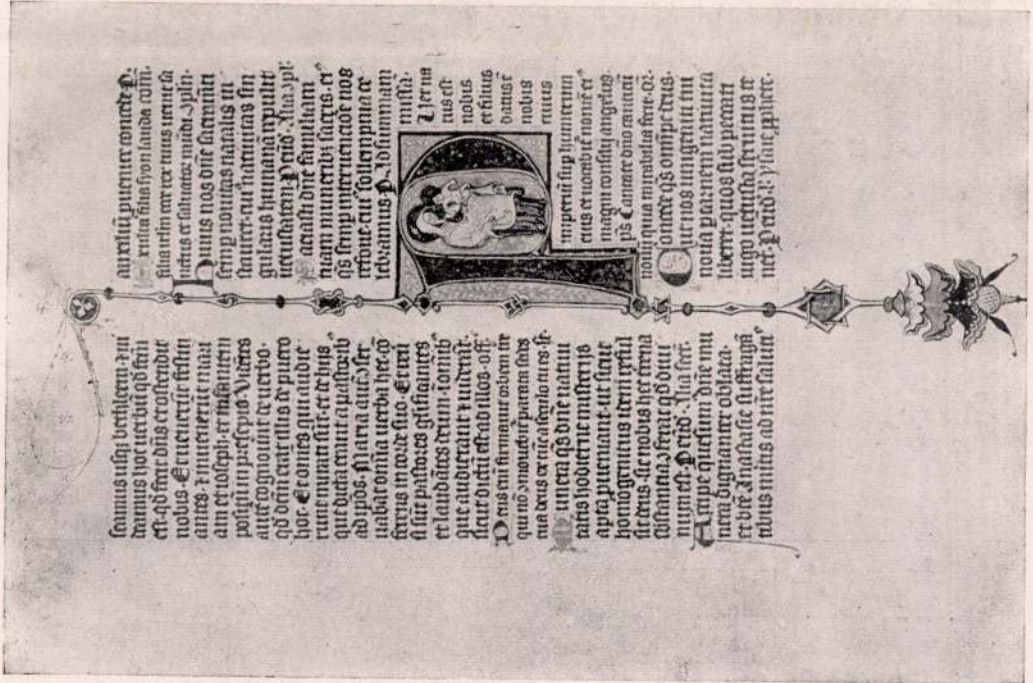 seamus usq; bethleem. ⁊ ui
deamus hoc uerbū qd̄ fctm̄
est. qd̄ fecit dn̄s et ostendit
nobis. Et uenerūt festin
antes. ⁊ inuenerūt mari
am et ioseph. et infantem
positū in presepio. Vidētes
autē cognouerūt de uerbo.
qd̄ dcm̄ erat illis de puero
hoc. Et omēs qui audie
runt mirati sūt. et de his
que dicta erant a pastorib;
ad ip̄os. Maria autē ꝯser
uabat om̄ia uerba hec. ꝯ
ferens in corde suo. Et reū
si sūt pastores glificantes
et laudātes deum. ī omīb;
que audierāt ⁊ uiderāt.
sicut dictū est ad illos. off
Deus eni firmauit orbem tre
qui nō ꝯmouebit̉ parata sedes
tua deus ex tūc a seculo tu es. se.
Munera q̄s dn̄e natiui
tatis hodierne misterijs
apta ꝓueniant. ut sicut
homo genitus idem reful
sit deus. sic nobis hec terrena
substantia ꝯferat qd̄ diui
num est. Per eūd̄. Alia secr̄.
Accipe quesum̄ dn̄e mu
nera dignanter oblata.
et bt̄e anastasie suffragā
tibus mitis ad nr̄e salutis
auxiliū ꝓuenire concede. P.
Exulta filia syon lauda com̄.
filia ihrl̄m ecce rex tuus uenit sā
nctus et saluator mūdi. ꝯplen.
Huius nos dn̄e sacramti
semp nouitas natalis in
stauret. cui' natiuitas sin
gularis humanā repulit
uetustatem. Per eūd̄. Alia ꝯpl.
Saciasti dn̄e familiam
tuam munerib; sacris. eī'
q̄s semp interuencōe nos
refoue. cui' solempnia ce
lebramus. P. Ad summam
missā.
Uer na
tus est
nobis
et filius
datus ē
nobis
cuius
imperiū sup humerum
eius et uocabit̉ nomē ei'
magni consilij angelus.
ps̄ Cantate dn̄o canticū
nouū quia mirabilia fecit. or̄.
Concede q̄s omīps deus.
ut nos unigeniti tui
noua ꝑ carnem natiuitas
liberet. quos sub peccati
iugo uetusta seruitus te
net. Per eūd̄. l. ysaie ꝓphete.